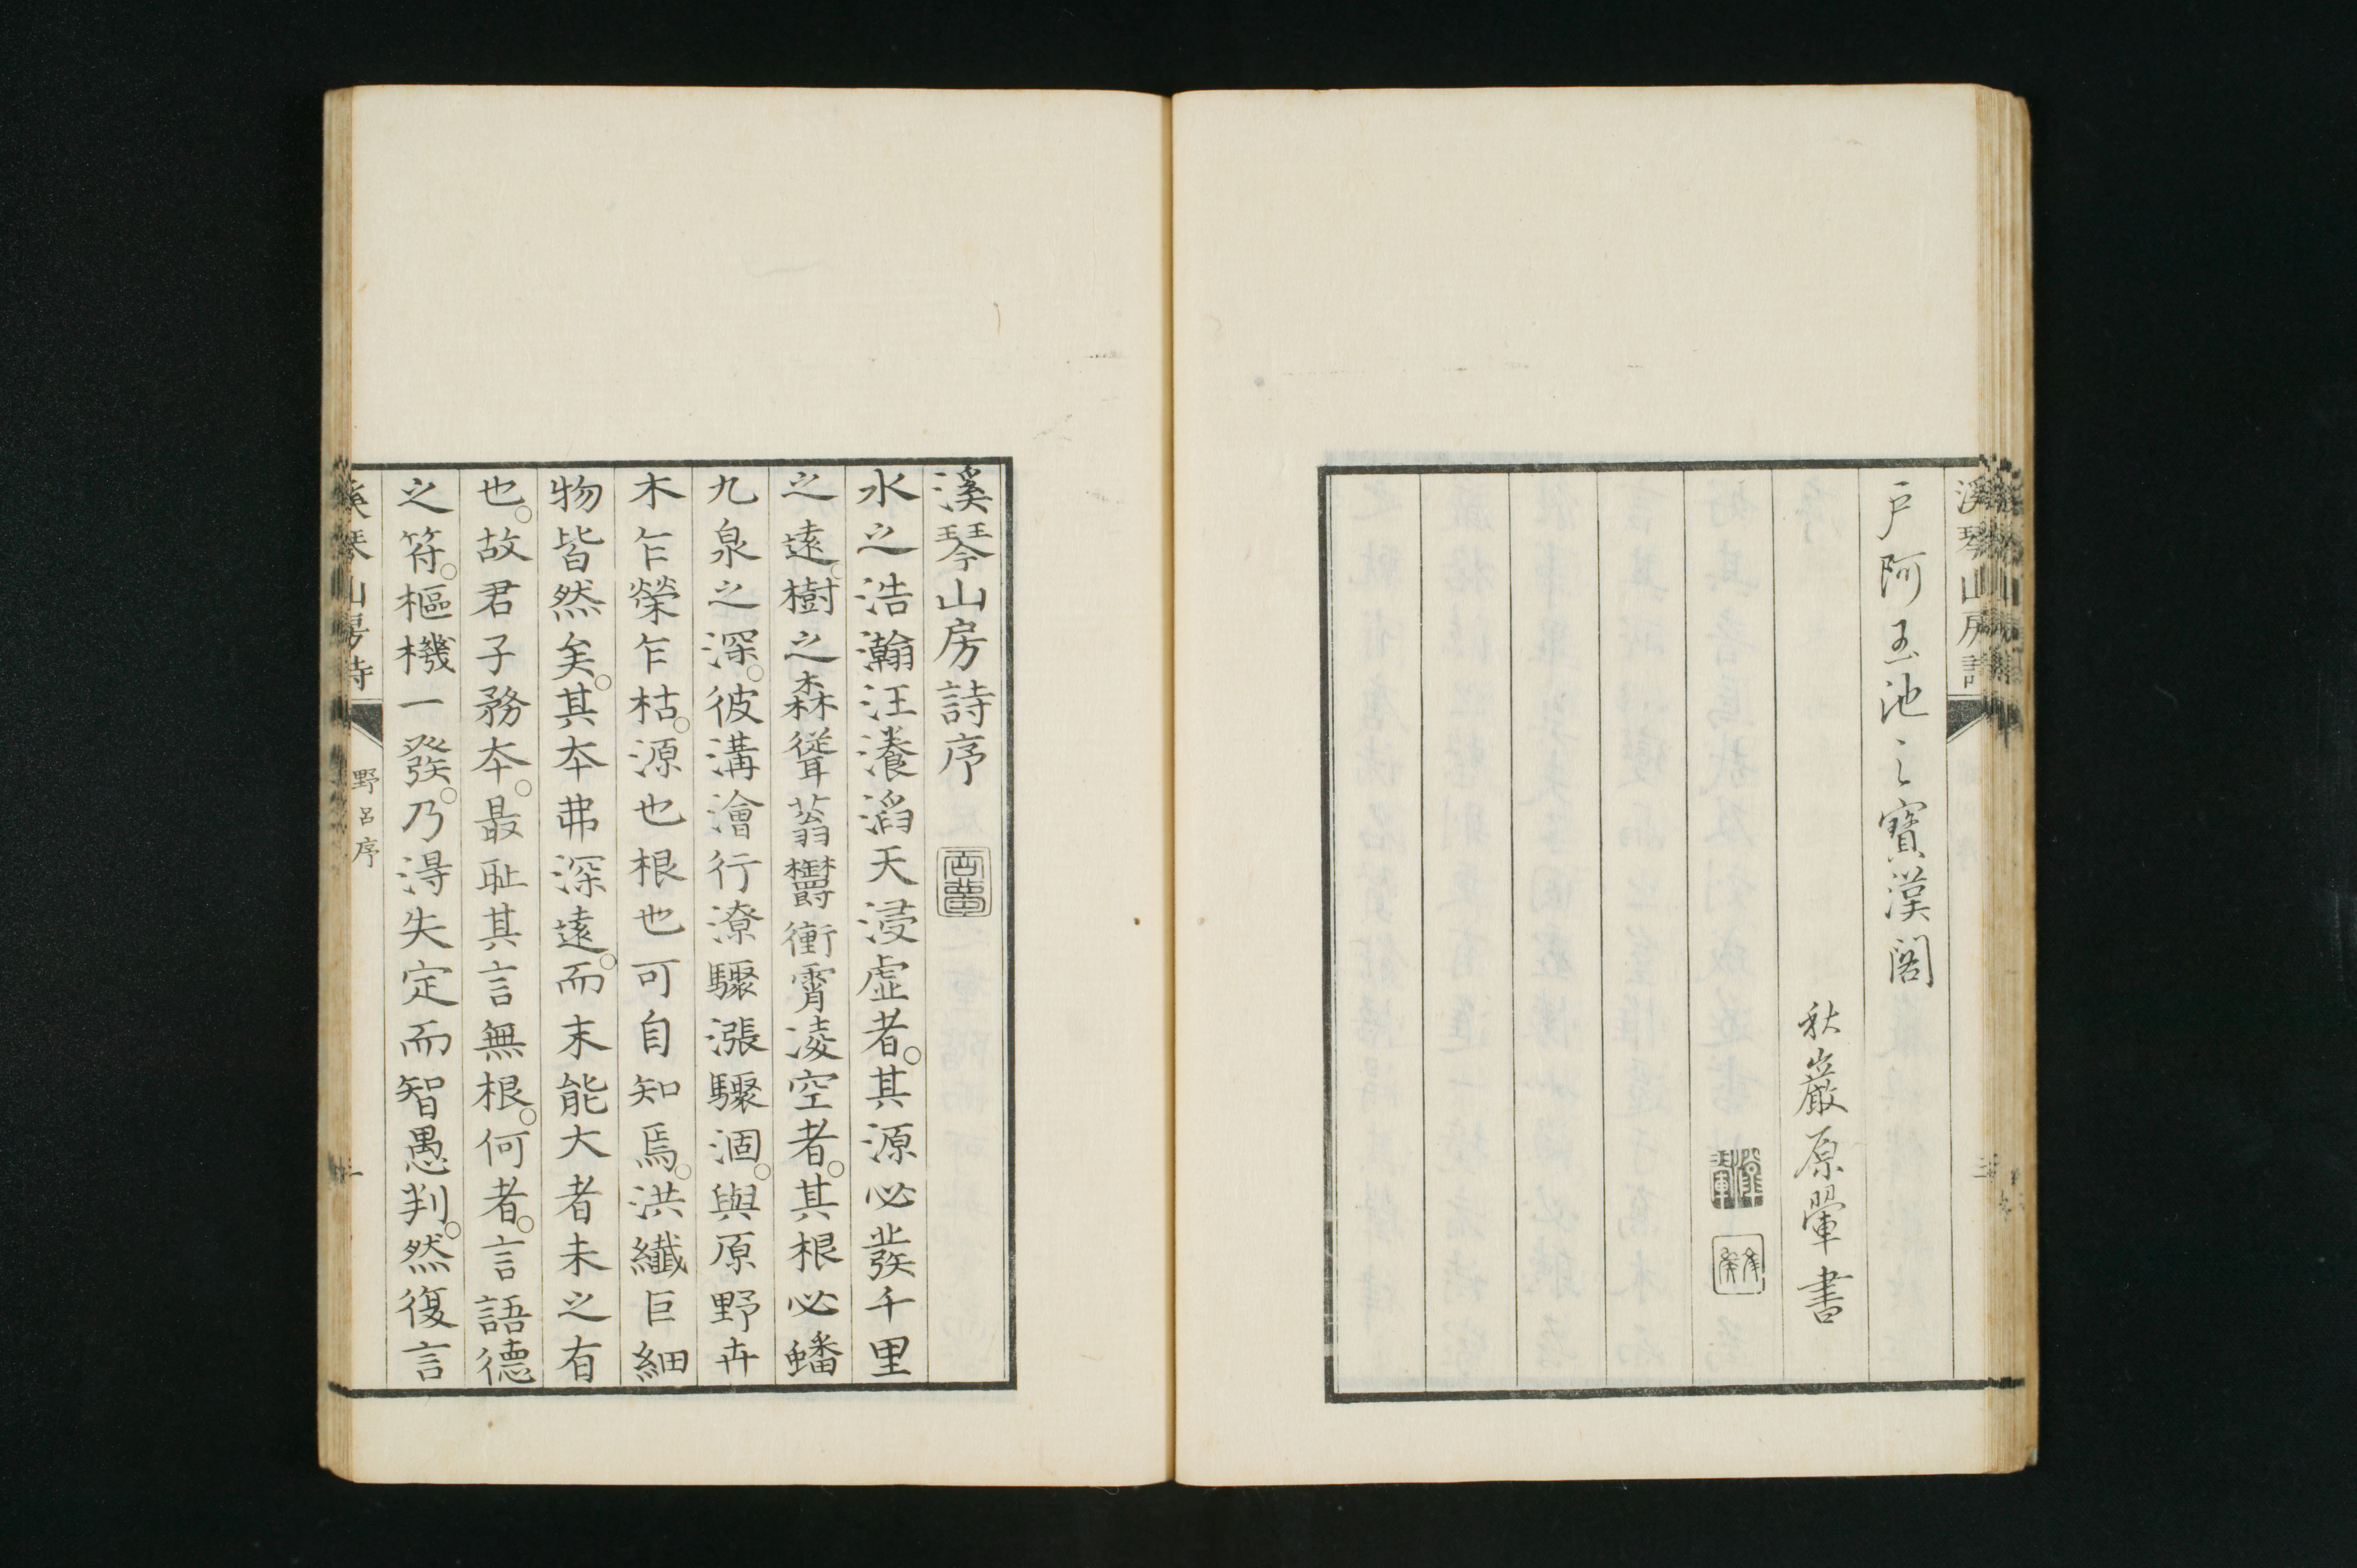 溪琴山房詩
戶阿玉池之寶漢閣
秋巖原翬書
溪琴山房詩序
水之浩瀚汪瀁滔天浸虛者。其源必發千里
之遠。樹之森聳蓊欝衝霄凌空者。其根必蟠
九泉之深。彼溝澮行潦驟漲驟涸。與原野卉
木乍榮乍枯。源也根也可自知焉。洪纖巨細
物皆然矣。其本弗深遠。而末能大者未之有
也。故君子務本。最耻其言無根。何者。言語德
之符。樞機一發。乃得失定而智愚判。然復言
溪琴山房詩
野呂序
一